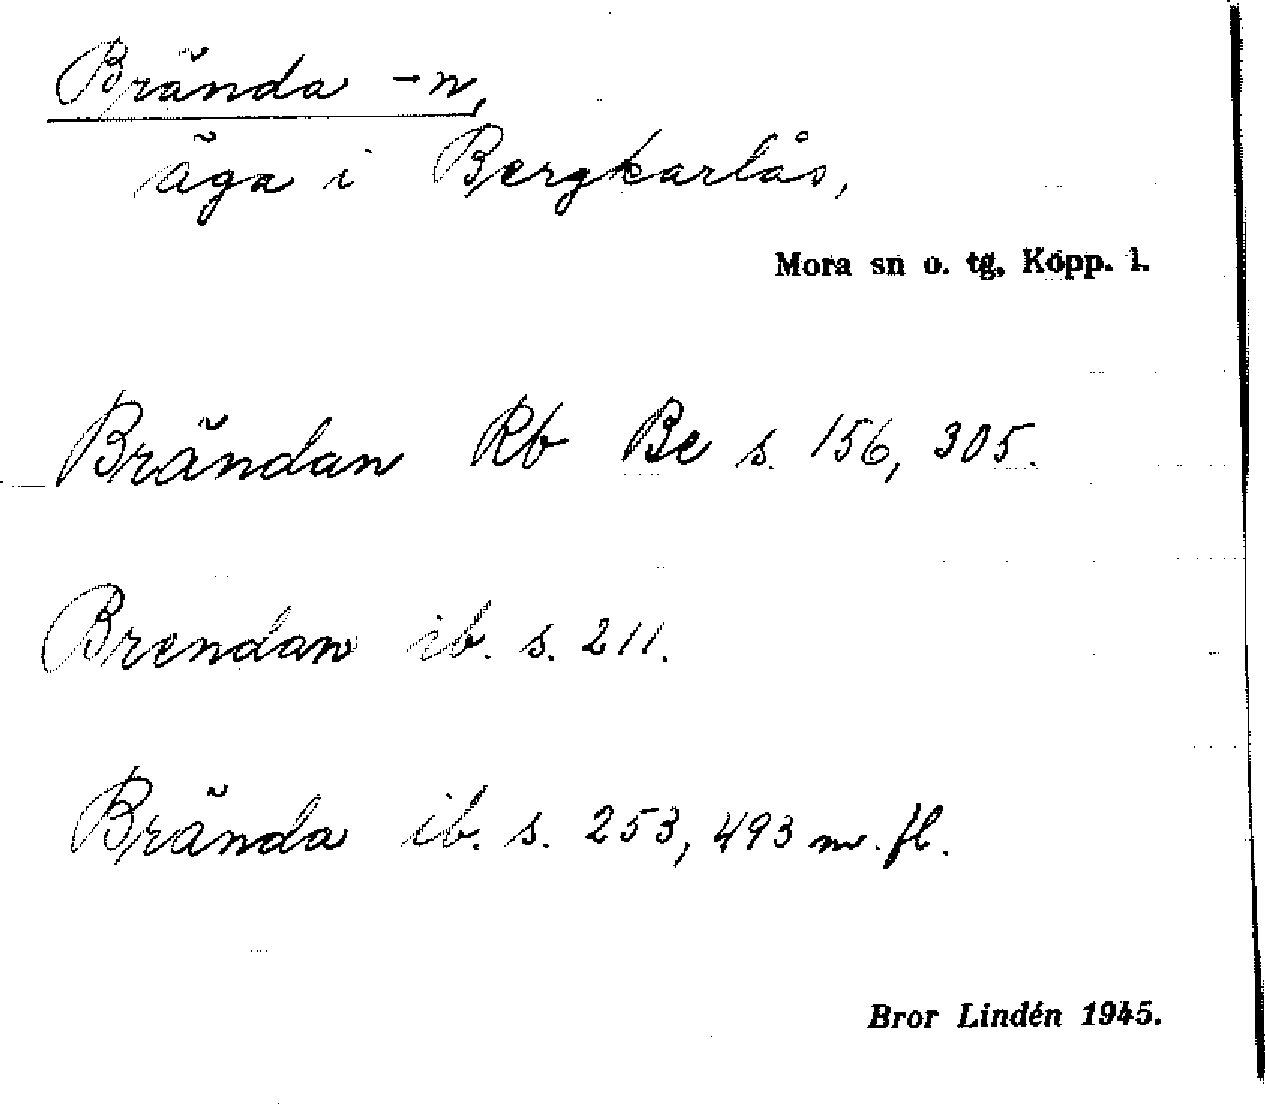 Brända -n,
äga i Bergkarlås,
Mora sn o. tg, Kopp. l.
Brändan Rb Be s. 156, 305.
Brendan ib. s. 211.
Brända ib. s. 253, 493 m. fl.
Bror Lindén 1945.